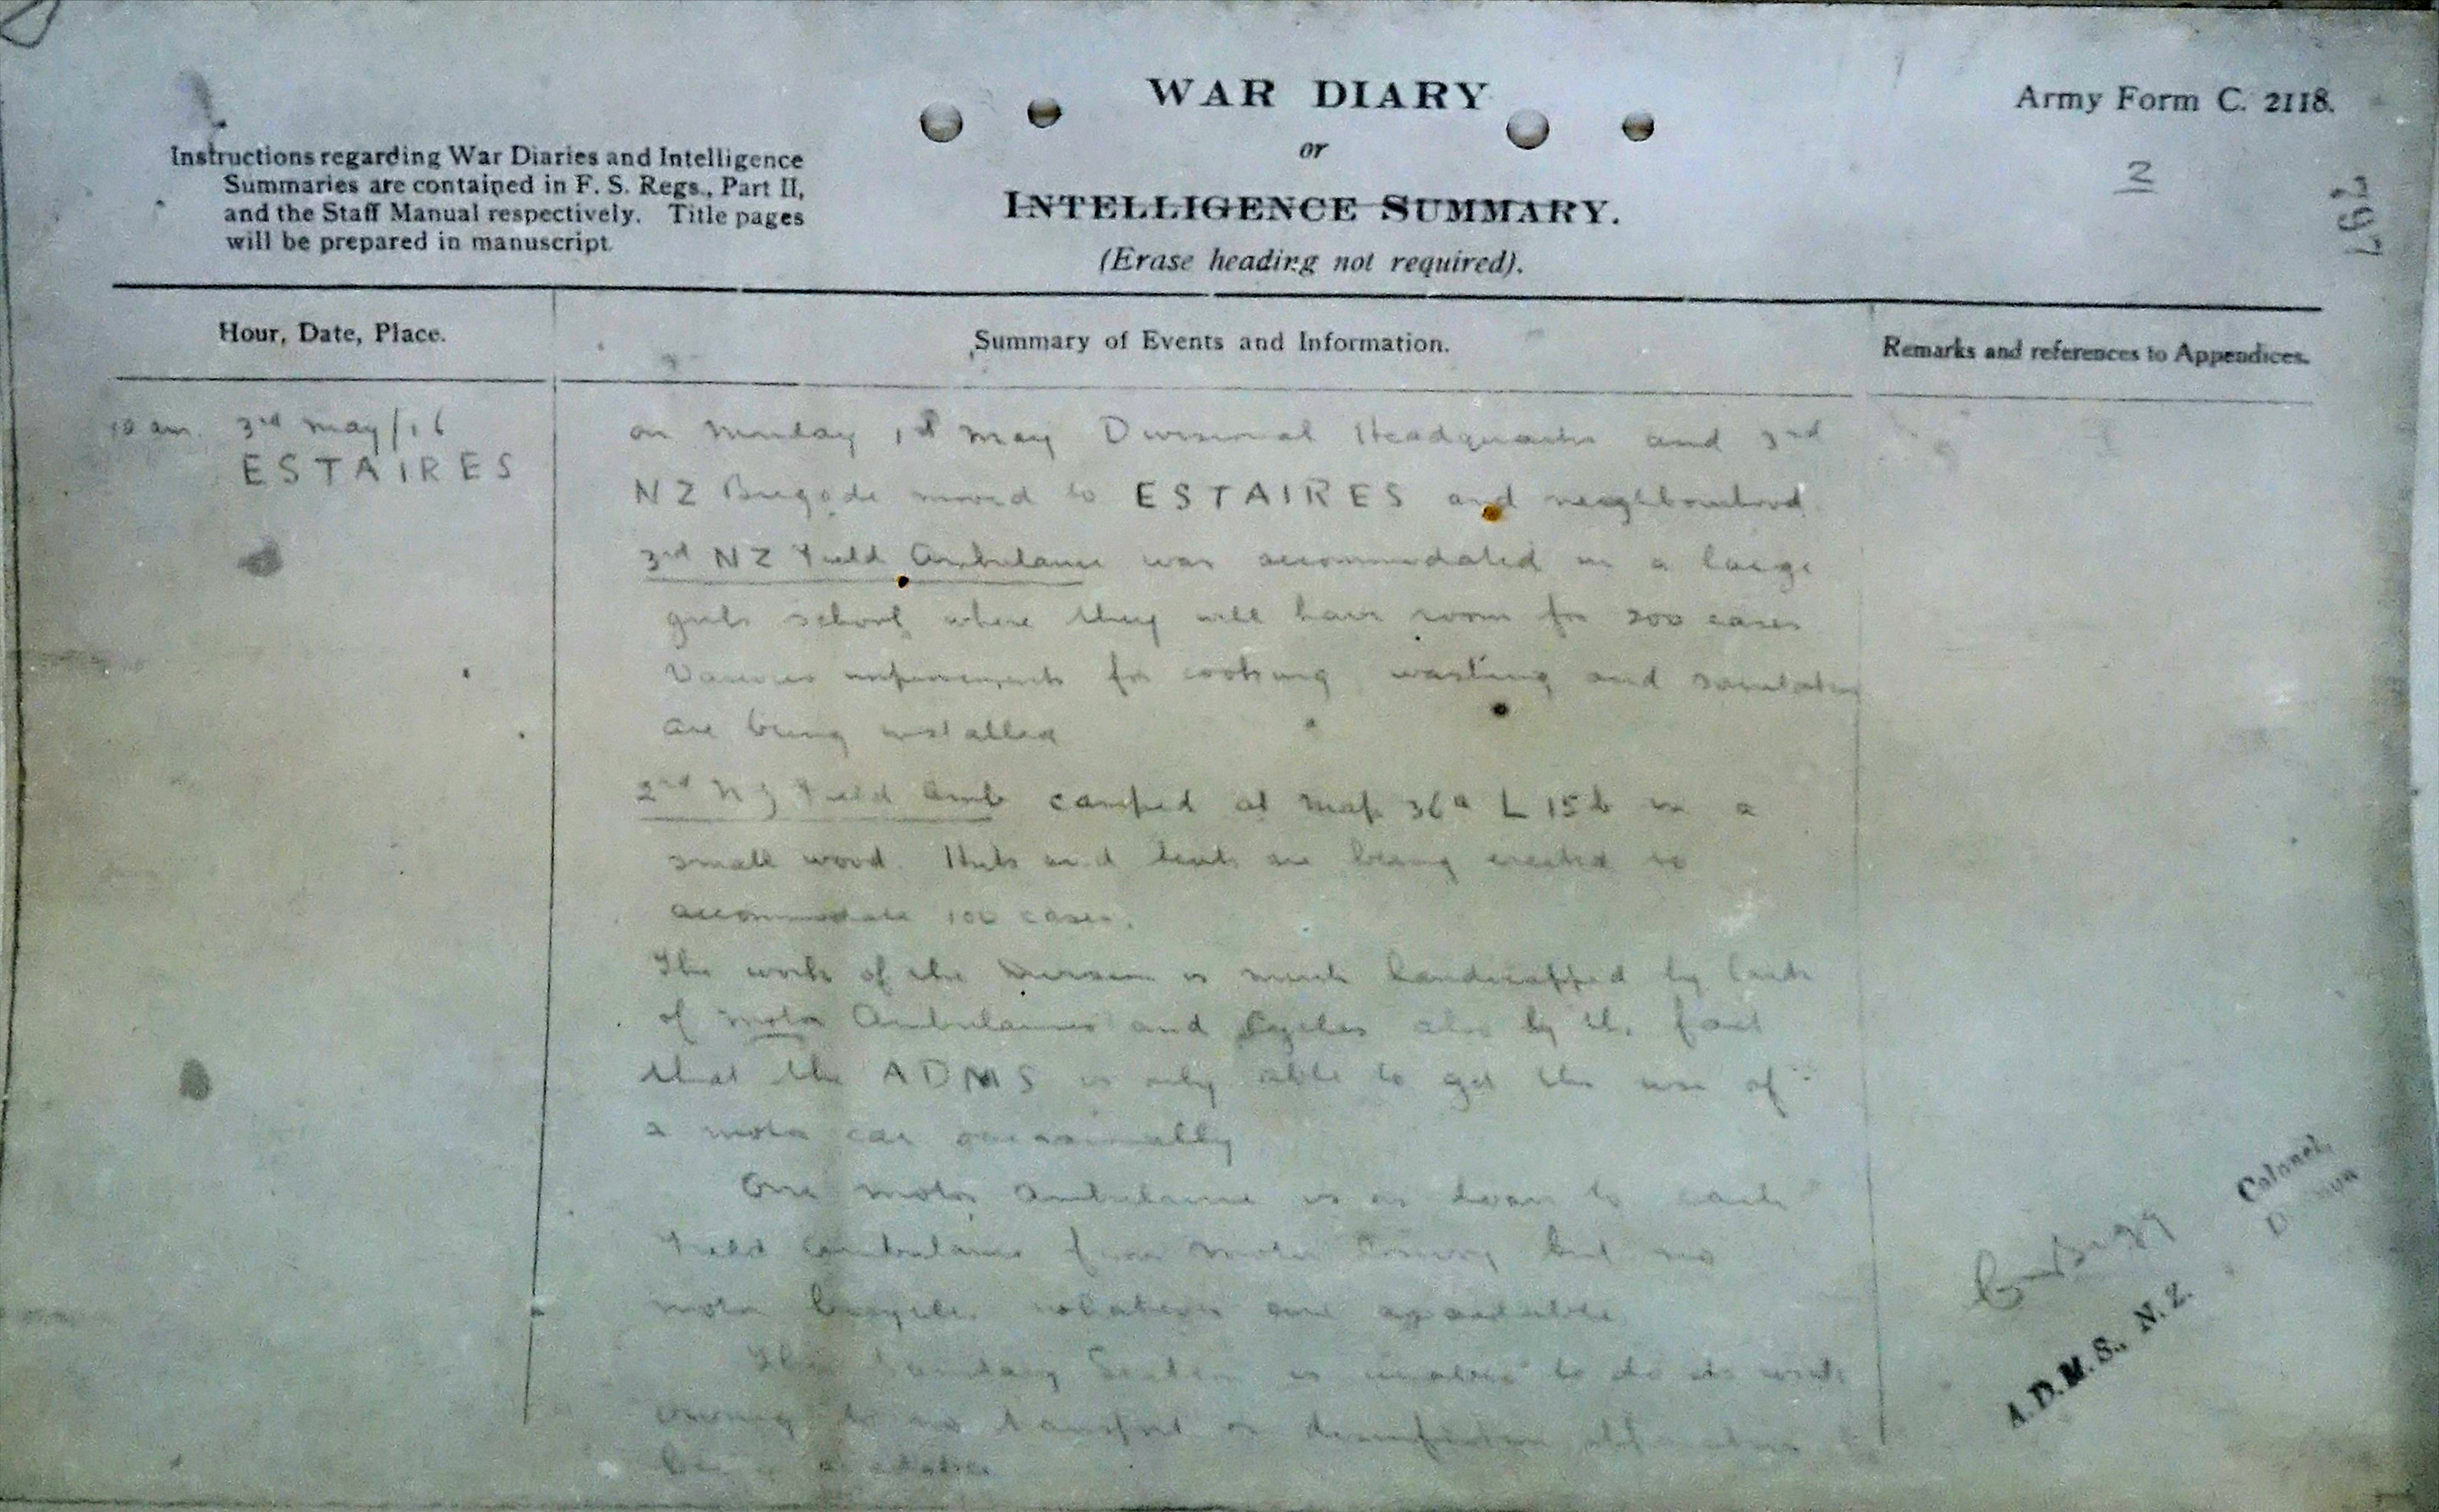 WAR DIARY
or
INTELLIGENCE SUMMARY.
(Erase heading not required).
Army Form C. 2118.
2
797
Instructions regarding War Diaries and Intelligence
Summaries are contained in F. S. Regs., Part II,
and the Staff Manual respectively. Title pages
will be prepared in manuscript.
Hour, Date, Place.
Summary of Events and Information.
Remarks and references to Appendices.
10 am. 3rd May/16
ESTAIRES
on Monday 1st May Divisional Headquarters and 3rd
NZ Brigade moved to ESTAIRES and neighbourhood
3rd NZ Field Ambulance was accommodated in a large
girls school, where they will have room for 200 cases
Various improvements for cooking, washing and sanitation
are being installed
2nd NZ Field Amb camped at Map 36a L 15 b in a
small wood. Huts and tents are being erected to
accommodate 100 cases.
The work of the Division is much handicapped by lack
of motor Ambulances and Cycles also by the fact
that the ADMS is only able to get the use of
a motor car occasionally
One motor ambulance is on loan to each
Field Ambulance from Motor Convoy but no
motor bicycles are available
The Sanitary Section is unable to do its work
owing to no transport or disinfection
being available
Colonel,
A.D.M.S., N.Z.